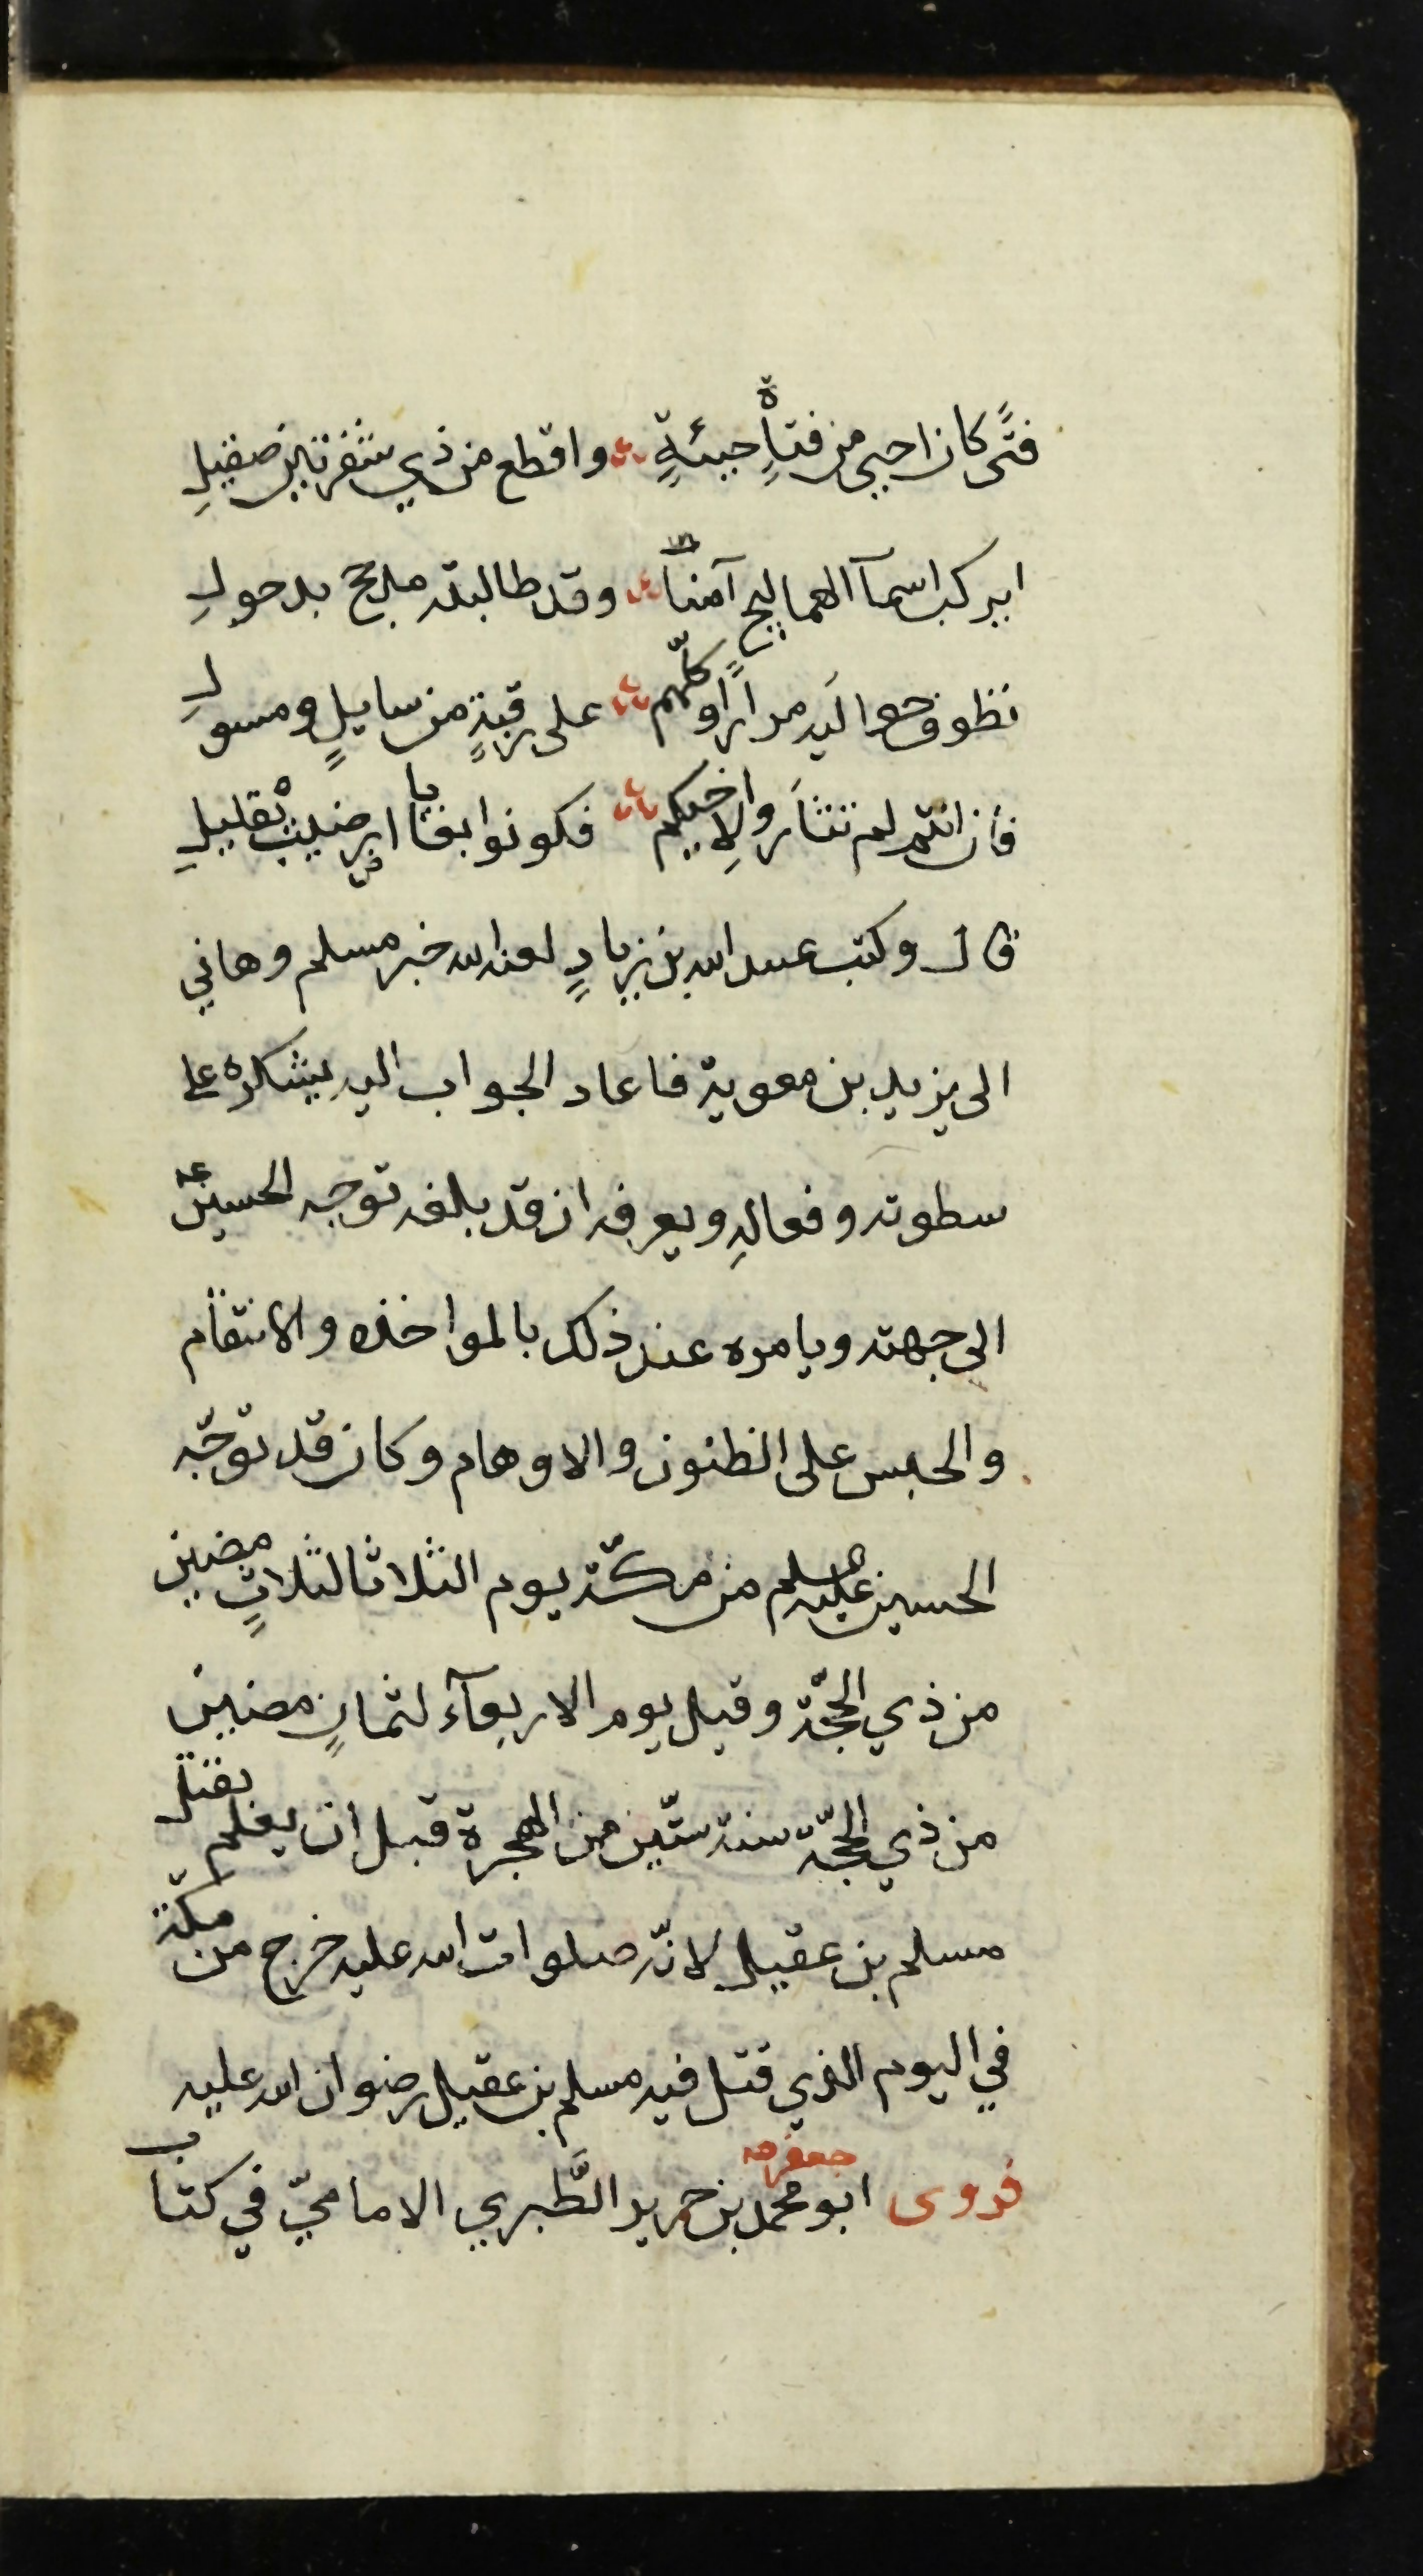 فتًى كان احيى من فتاةٍ حيئةٍ واقطع من ذي شفرتين صقيلِ
ايركب اسمآ الهماليج آمنًا وقد طالبته مذحج بدحولِ
تطوف حواليه مرادًا وكلّهم على رقبةٍ من سايلٍ ومسولِ
فان انتم لم تثأروا لاخيكم فكونوا بغايا ارضيت بقليلِ
قال وكتب عبيد الله بن زيادٍ لعنه الله خبر مسلم وهاني
الى يزيد بن معوية فاعاد الجواب اليه يشكره على
سطوته وفعالهِ ويعرفه ان قد بلغه توجه الحسين ع
الى جهته ويامره عند ذلك بالمواخذه والانتقام
والحبس على الظنون والاوهام وكان قد توجّه
الحسين عليه السلم من مكّة يوم الثلاثا لثلاثٍ مضين
من ذي الحجّة وقيل يوم الاربعآء لثمانٍ مضين
من ذي الحجّة سنة ستّين من الهجرة قبل ان يعلم بقتل
مسلم بن عقيل لانّه صلوات الله عليه خرج من مكّة
في اليوم الذي قتل فيه مسلم بن عقيل رضوان الله عليه
فروى ابو جعفر محمد بن جرير الطَّبري الاماميّ في كتاب